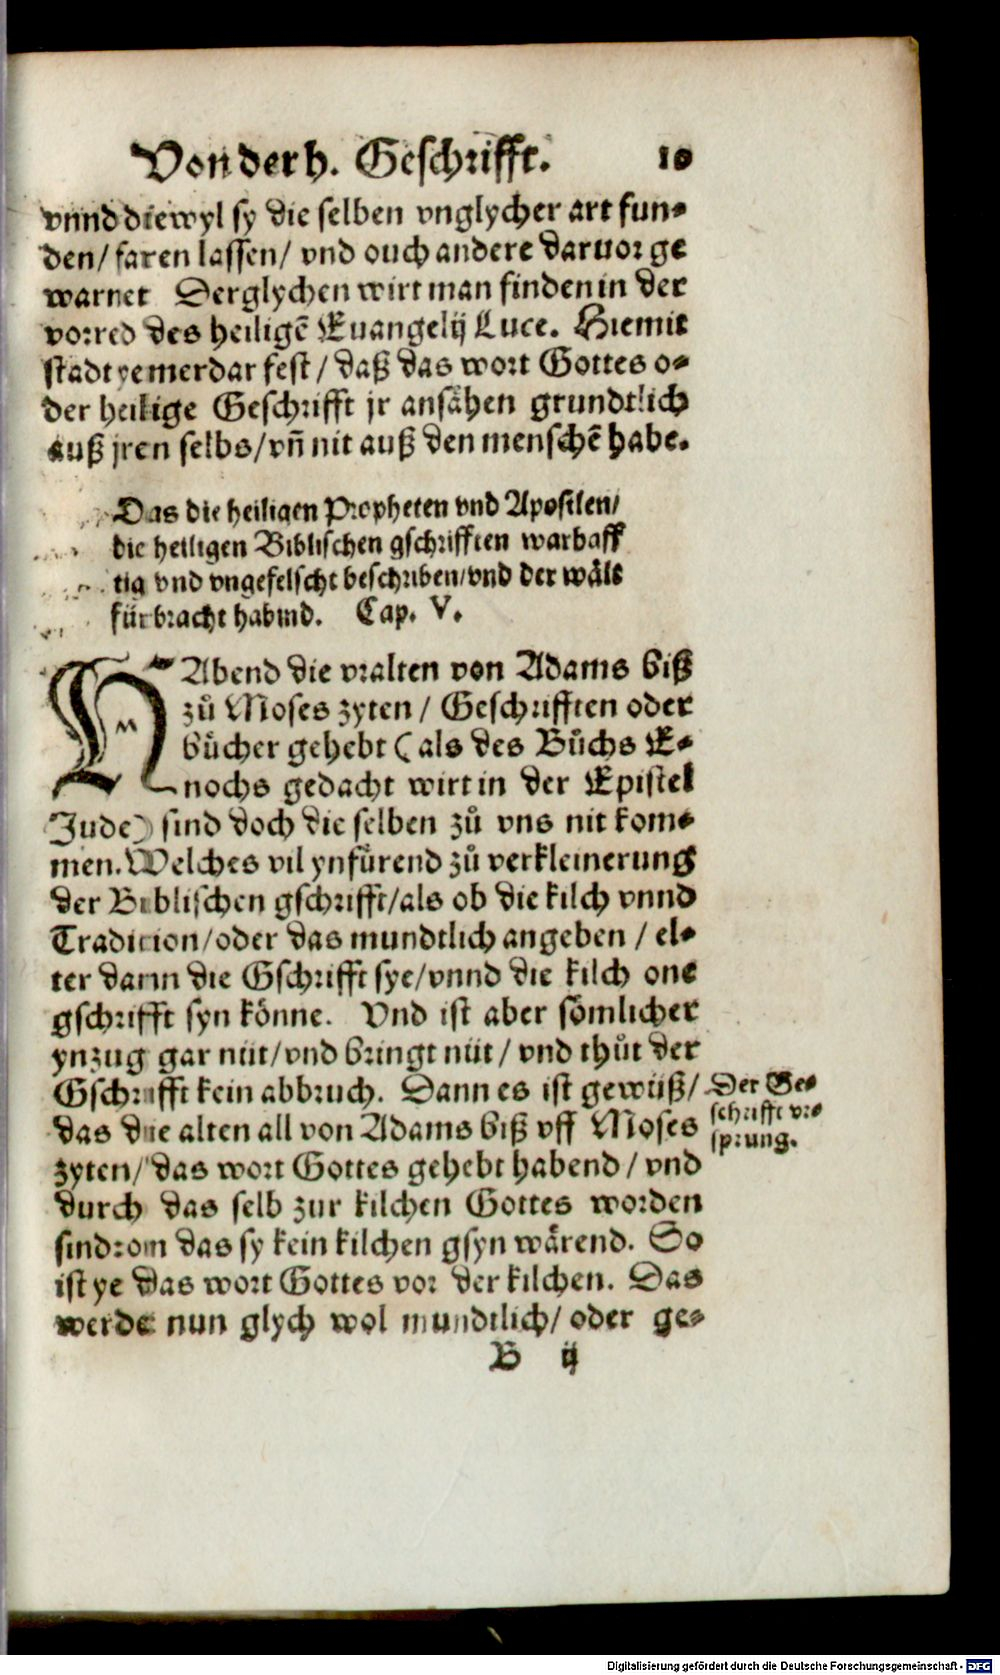 Von der h. Geschrifft. 10
vnnd diewyl sy die selben vnglycher art fun⸗
den/ faren lassen/ vnd ouch andere daruor ge
warnet Derglychen wirt man finden in der
vorred des heiligẽ Euangelij Luce. Hiemit
stadt yemerdar fest/ daß das wort Gottes o⸗
der heilige Geschrifft jr ansåhen grundtlich
auß jren selbs/ vñ nit auß den menschẽ habe.
Das die heiligen Propheten vnd Apostlen/
die heiligen Biblischen gschrifften warhaff
tig vnd vngefelscht beschriben/ vnd der wålt
fürbracht habind. Cap. V.
HAbend die vralten von Adams biß
zů Moses zyten/ Geschrifften oder
bůcher gehebt (als des Bůchs E⸗
nochs gedacht wirt in der Epistel
Jude) sind doch die selben zů vns nit kom⸗
men. Welches vil ynfůrend zů verkleinerung
der Biblischen gschrifft/ als ob die kilch vnnd
Tradition/ oder das mundtlich angeben/ el⸗
ter dann die Gschrifft sye/ vnnd die kilch one
gschrifft syn könne. Vnd ist aber sömlicher
ynzug gar nüt/ vnd bringt nüt/ vnd thůt der
Gschrifft kein abbruch. Dann es ist gewüß/
das die alten all von Adams biß vff Moses
zyten/ das wort Gottes gehebt habend/ vnd
durch das selb zur kilchen Gottes worden
sind: on das sy kein kilchen gsyn wårend. So
ist ye das wort Gottes vor der kilchen. Das
werde nun glych wol mundtlich/ oder ge⸗
B ij
Der Ge⸗
schrifft vr⸗
sprung.
Digitalisierung gefördert durch die Deutsche Forschungsgemeinschaft - DFG